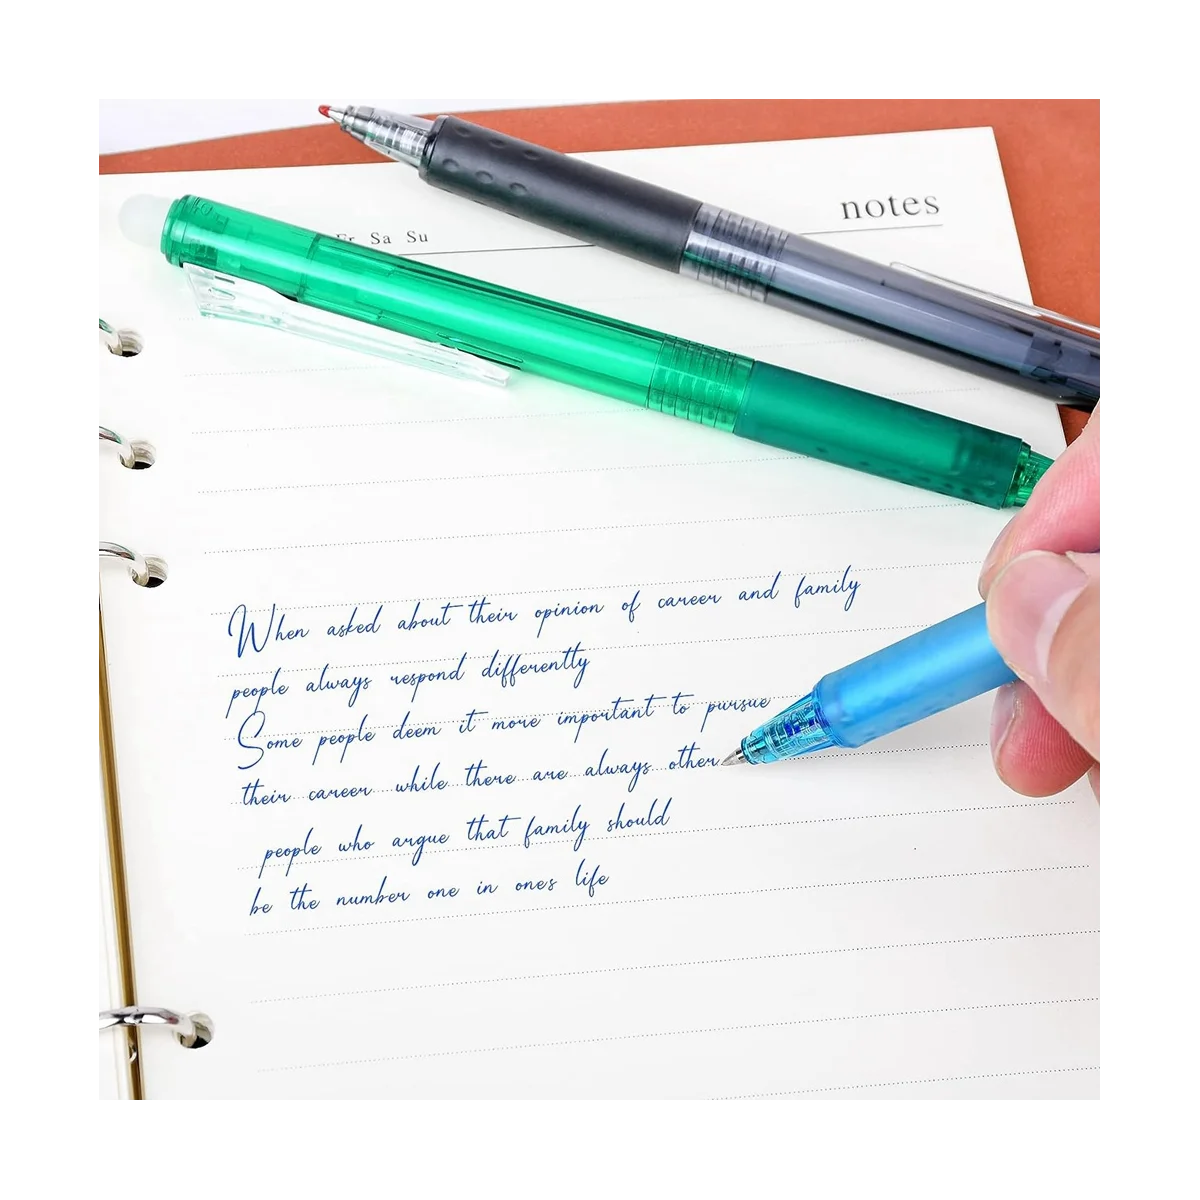 notes
Fr Sa Su
When asked about their opinion of career and family
people always respond differently
Some people deem it more important to pursue
their career while there are always other
people who argue that family should
be the number one in one's life